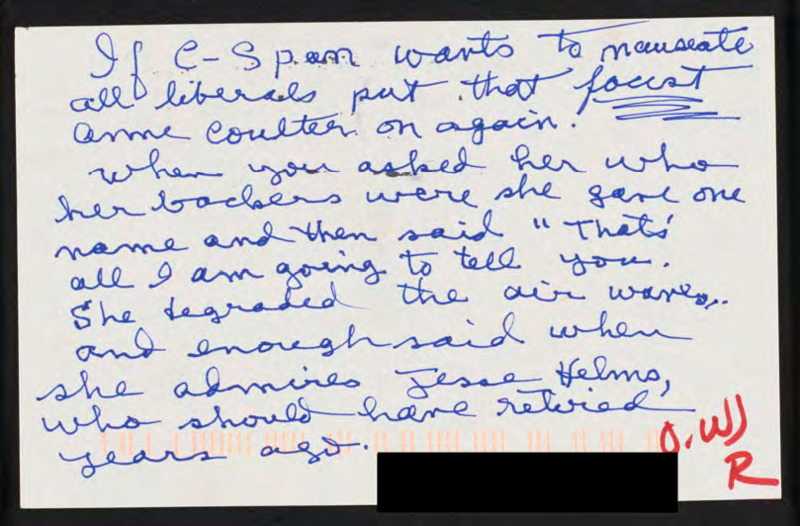 If C-Span wants to nauseate
all liberals put that facist
anne coulter on again.
When you asked her who
her backers were she gave one
name and then said "That's
all I am going to tell you.
She degraded the air waves,
and enough said when
she admires Jesse Helms,
who should have retired
years ago.
O.W)
R